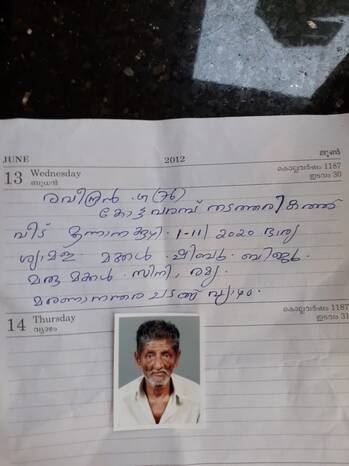 JUNE 2012 ജൂൺ
13 Wednesday കൊല്ലവർഷം 1187
ബുധൻ ഇടവം 30
രവീന്ദ്രൻ (76)
കോട്ടവരമ്പ് നടത്തരികത്ത്
വീട് മൂന്നാനക്കുഴി. 1-11/2020 ഭാര്യ
ശ്യാമള മക്കൾ ഷിബു. ബിജു.
മരുമക്കൾ. സിനി, രമ്യ.
മരണാനന്തര ചടങ്ങ്
14 Thursday കൊല്ലവർഷം 1187
വ്യാഴം ഇടവം 31